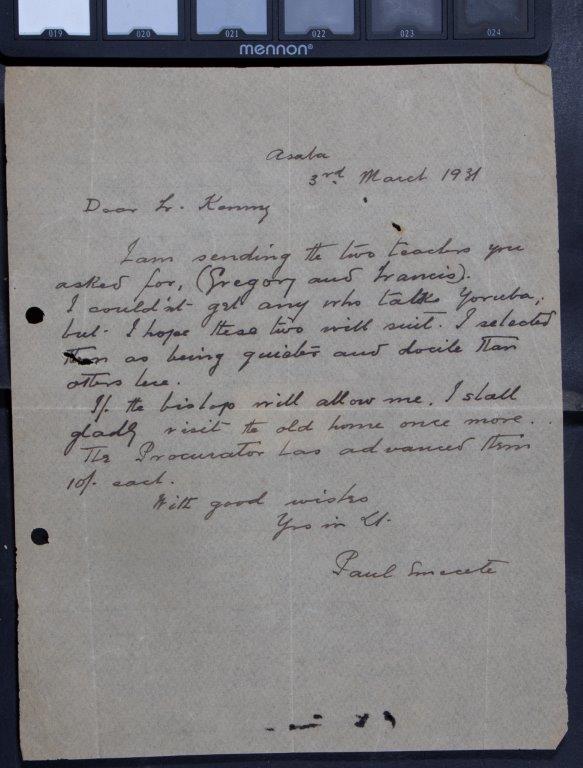 019 020 021 022 023 024
mennon®
Asaba
3rd March 1931
Dear Fr. Kenny
I am sending the two teachers you
asked for, (Gregory and Francis).
I could'nt get any who talks Yoruba;
but I hope these two will suit. I selected
them as being quieter and docile than
others here.
If the bishop will allow me, I shall
gladly visit the old home once more.
The Procurator has advanced them
10/- each.
With good wishes
Yrs in Xt.
Paul Emecete